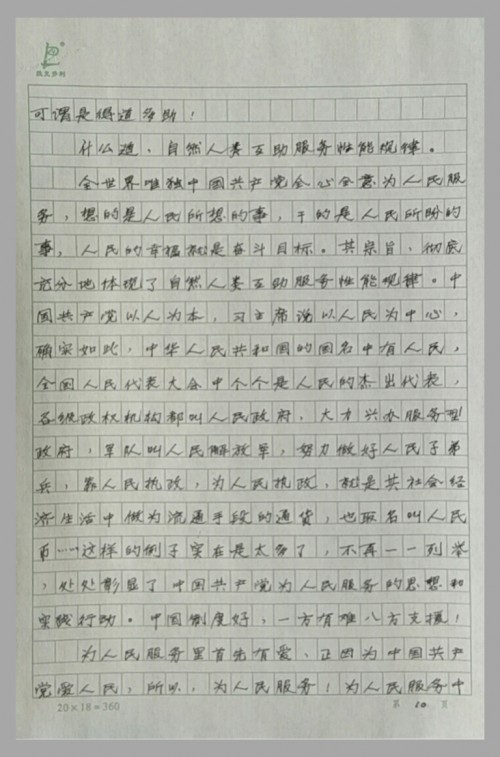 可谓是得道多助！
什么道、自然人类互助服务性能规律。
全世界唯独中国共产党全心全意为人民服
务，想的是人民所想的事，干的是人民所盼的
事，人民的幸福就是奋斗目标。其宗旨、彻底
充分地体现了自然人类互助服务性能规律。中
国共产党以人为本，习主席说以人民为中心，
确实如此，中华人民共和国的国名中有人民，
全国人民代表大会中个个是人民的杰出代表，
各级政权机构都叫人民政府，大力兴办服务型
政府，军队叫人民解放军，努力做好人民子弟
兵，靠人民执政，为人民执政，就是共社会经
济生活中做为流通手段的通货，也取名叫人民
币……这样的例子实在是太多了，不再一一列举
，处处彰显了中国共产党为人民服务的思想和
实践行动。中国制度好，一方有难八方支援！
为人民服务里首先有爱、正因为中国共产
党爱人民，所以，为人民服务！为人民服务中
20×18=360
第 10 页